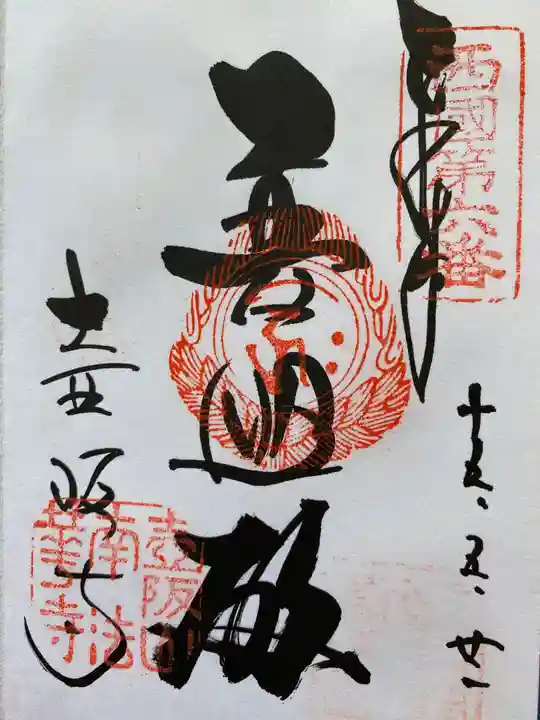 西國第六番
奉拝
十五、五、廿一
普照殿
壷阪寺
壷阪山
南法
華寺